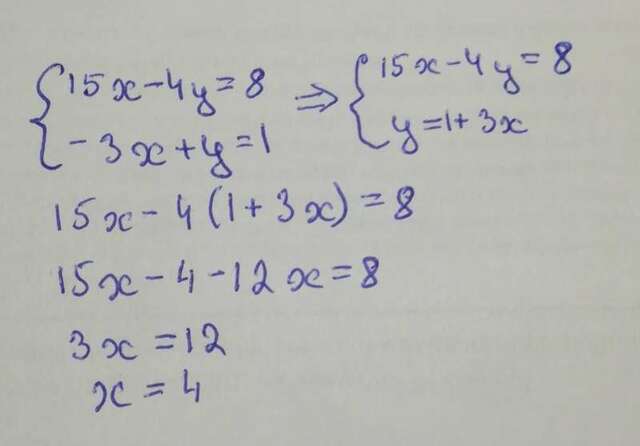 { 15x-4y=8 ⇒ { 15x-4y=8
-3x+y=1 y=1+3x
15x-4(1+3x)=8
15x-4-12x=8
3x=12
x=4